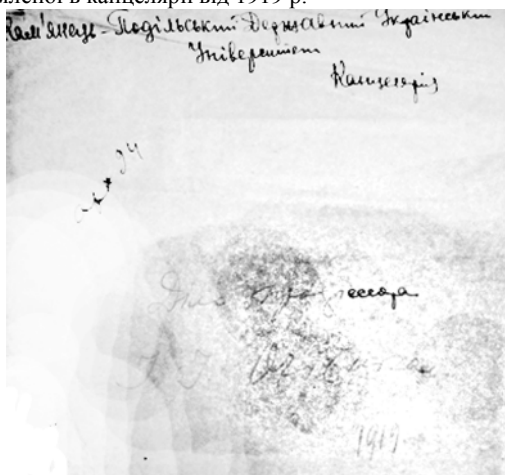 леної в канцелярії від 1919 р.
Кам'янець-Подільський Державний Український
Університет
Канцелярія
94
професора
1919